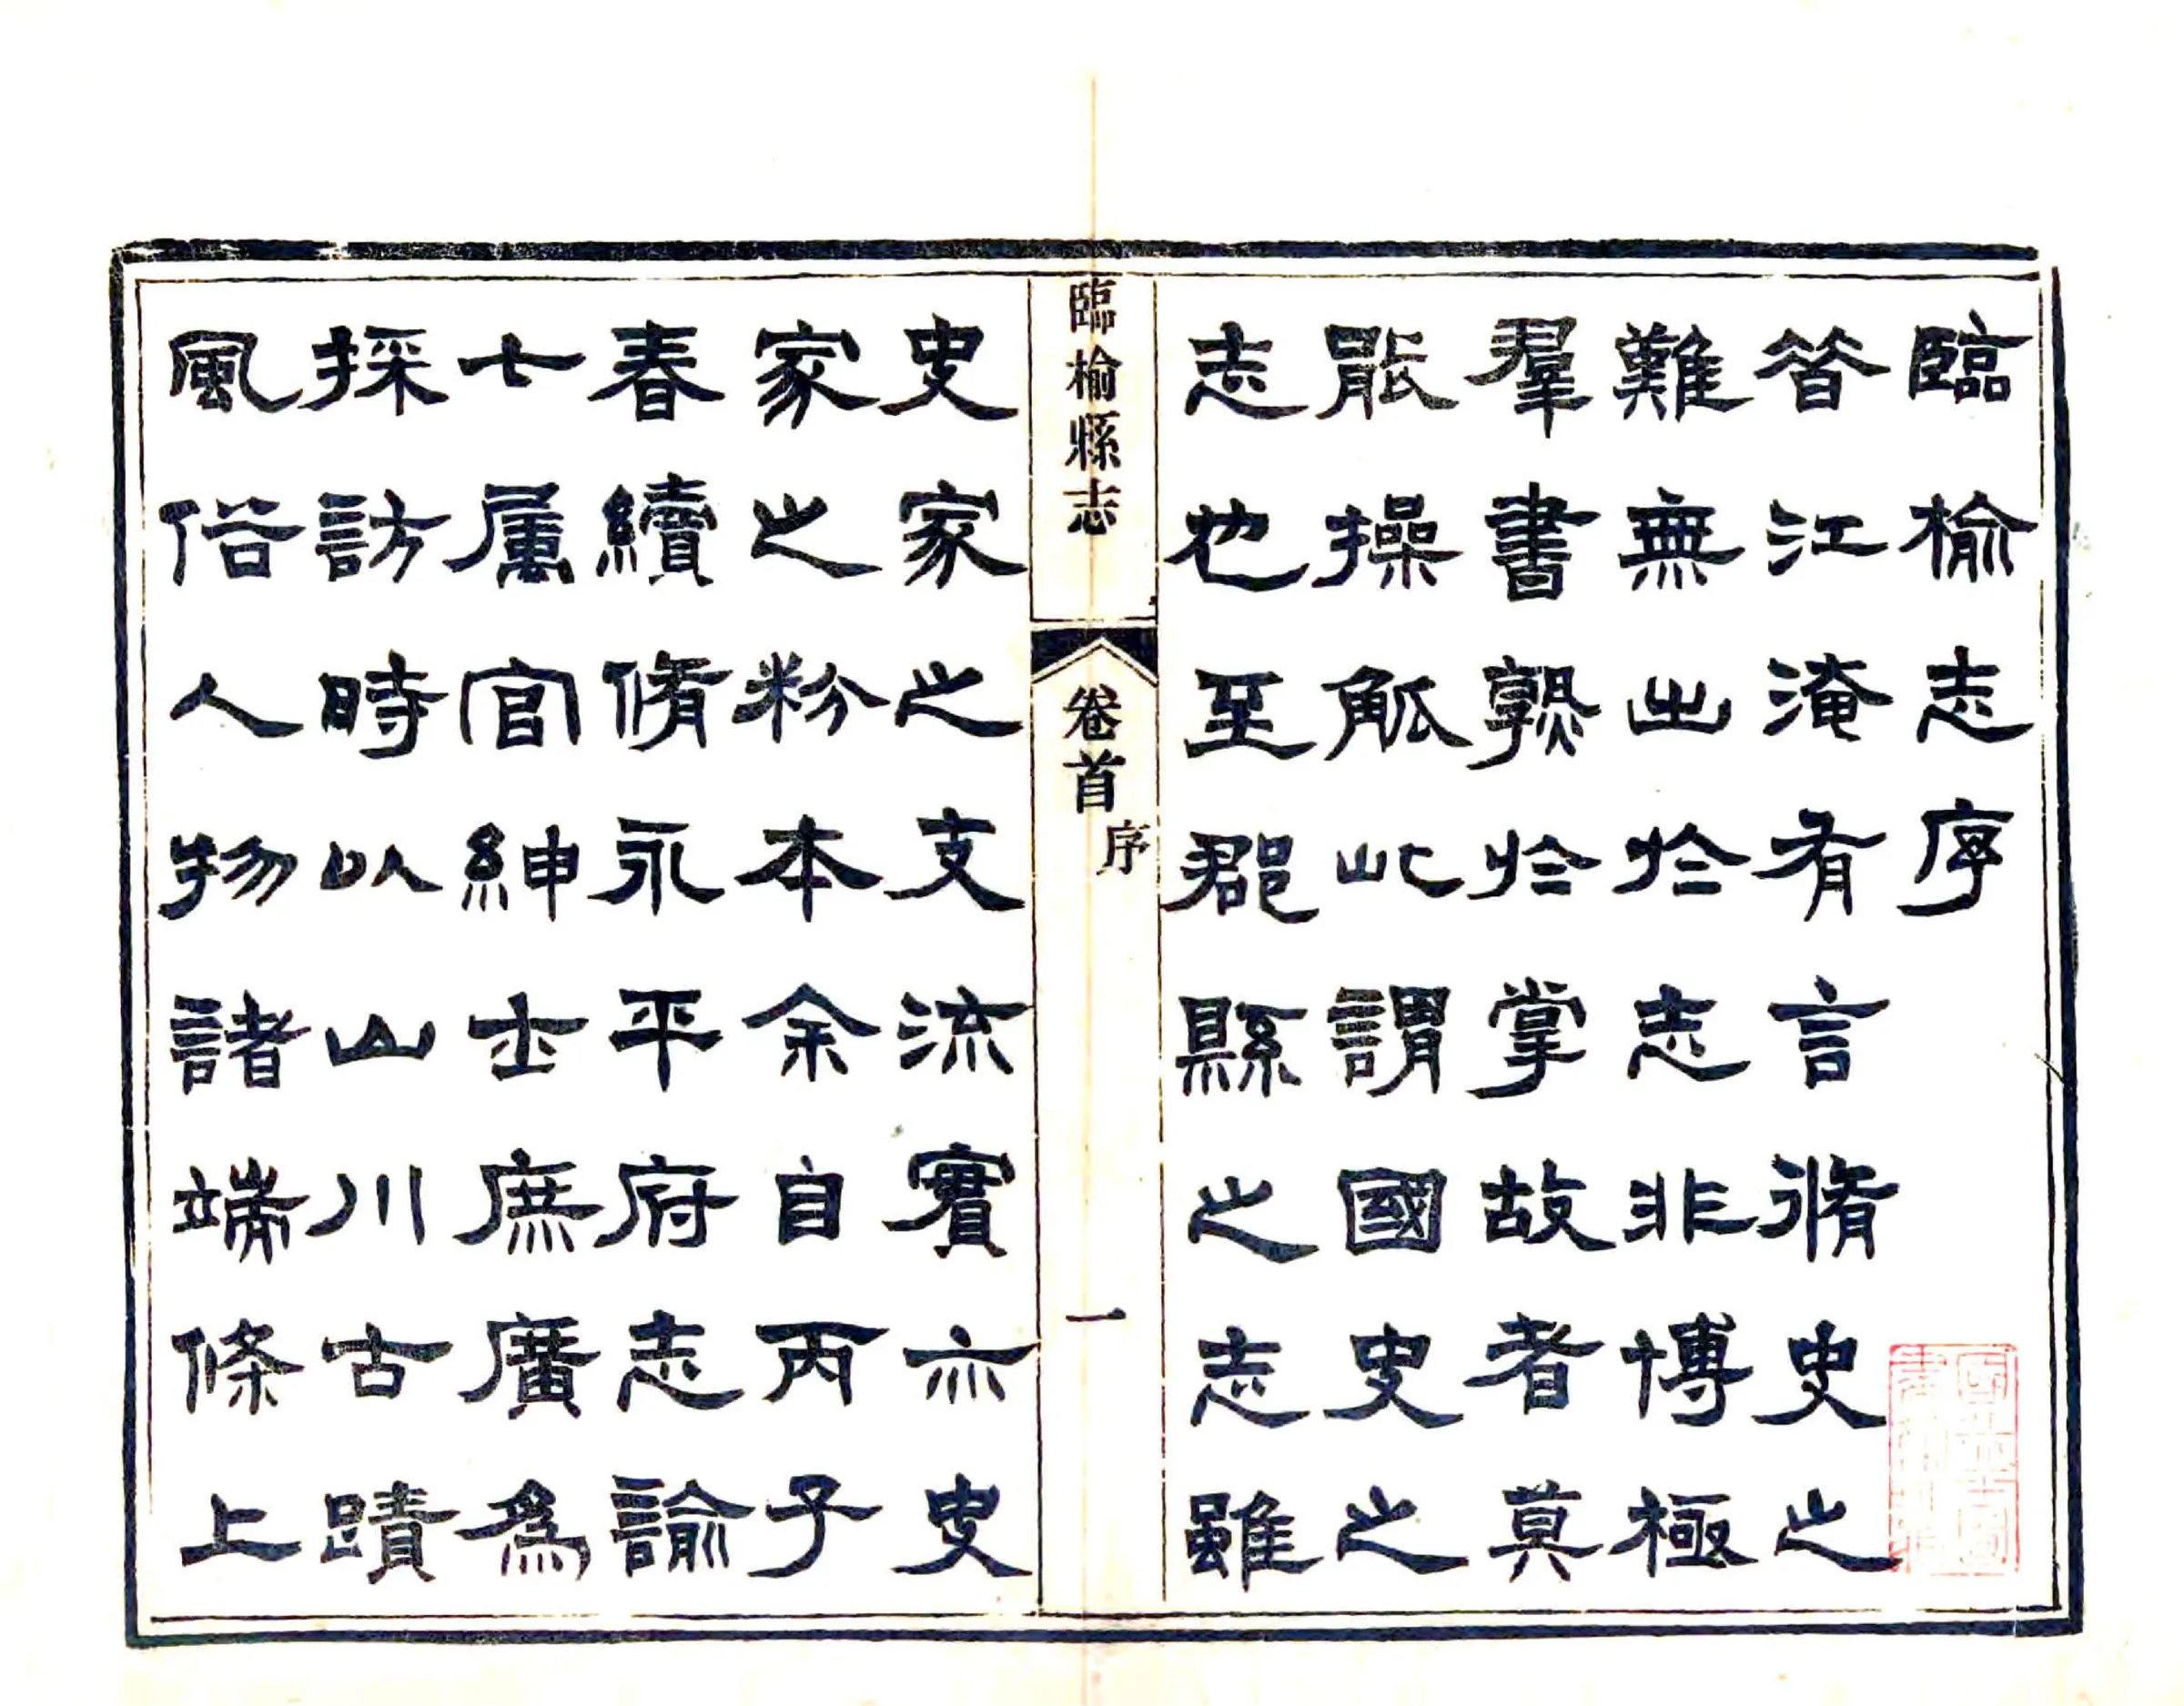 臨榆志序
昔江淹有言脩史之
難無出於志非博極
羣書熟於掌故者莫
能操觚此謂國史之
志也至郡縣之志雖
臨榆縣志 卷首 序 一
史家之支流實亦史
家之粉本余自丙子
春續脩永平府志諭
七屬官紳士庶廣為
採訪時以山川古蹟
風俗人物諸端條上